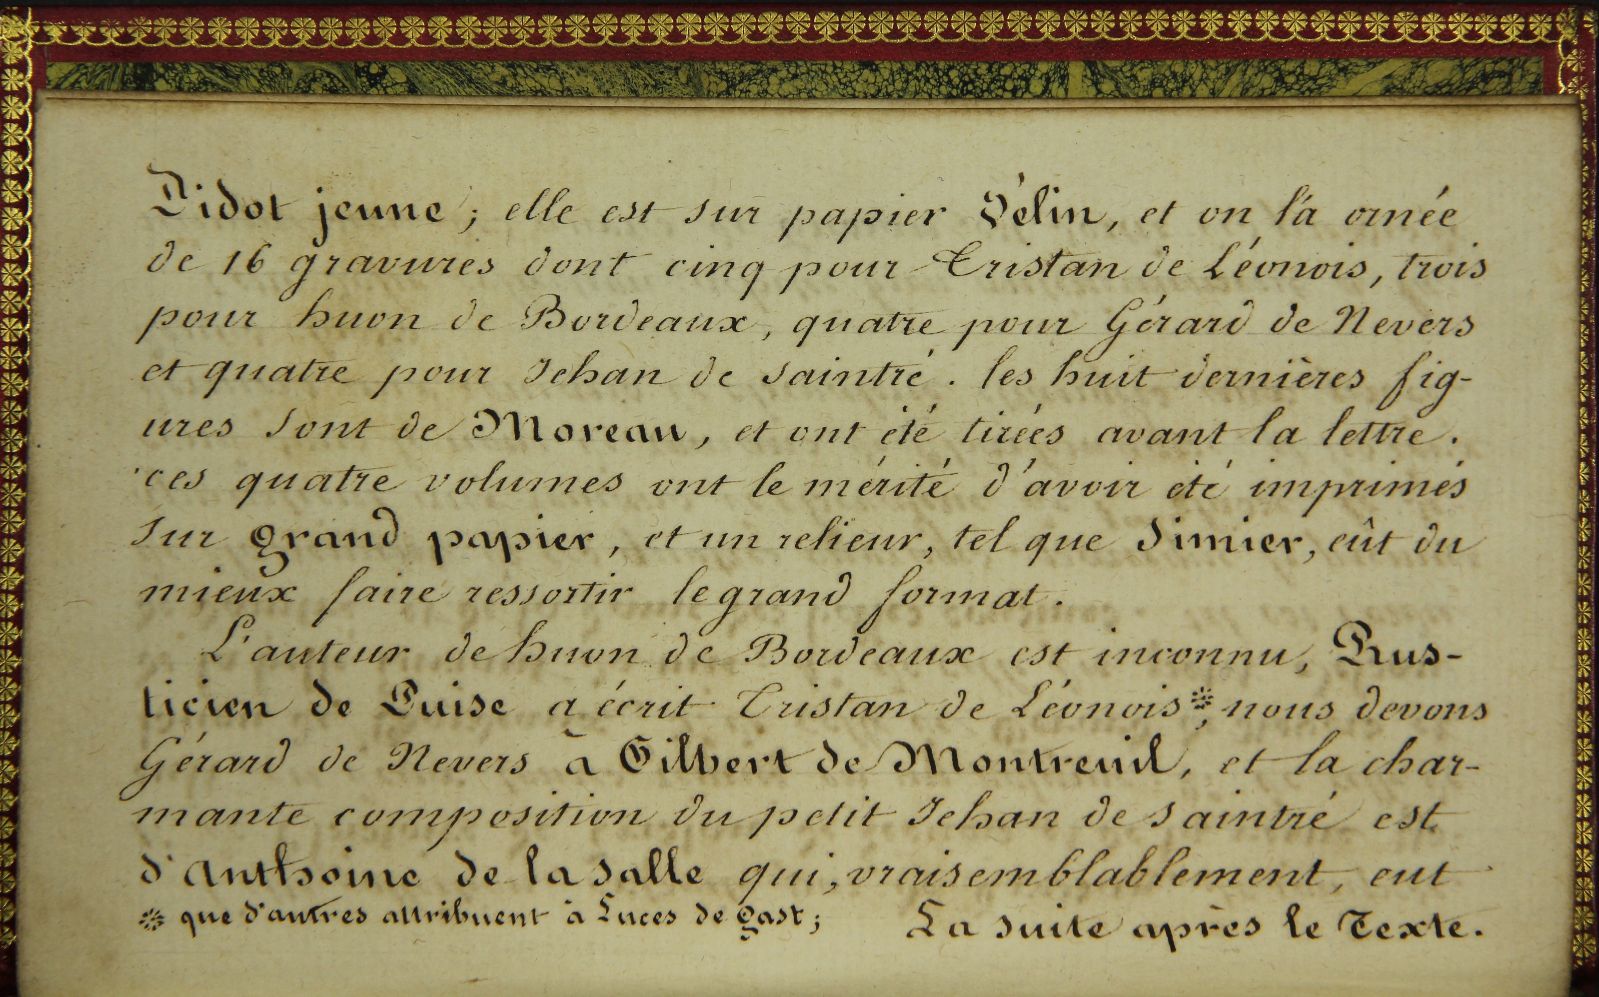 Didot jeune ; elle est sur papier Vélin, et on l'a ornée
de 16 gravures dont cinq pour Tristan de Léonois, trois
pour huon de Bordeaux, quatre pour Gérard de Nevers
et quatre pour Jehan de saintré . les huit dernières fig-
ures sont de Moreau, et ont été tirées avant la lettre .
ces quatre volumes ont le mérite d'avoir été imprimés
sur grand papier, et un relieur, tel que Simier, eût du
mieux faire ressortir le grand format.
L'auteur de huon de Bordeaux est inconnu, Rus-
ticien de Puise a écrit Tristan de Léonois ※, nous devons
Gérard de Nevers à Gilbert de Montreuil, et la char-
mante composition du petit Jehan de saintré est
d'Anthoine de la salle qui, vraisemblablement, eut
※ que d'autres attribuent à Luces de gast;
La suite après le Texte.